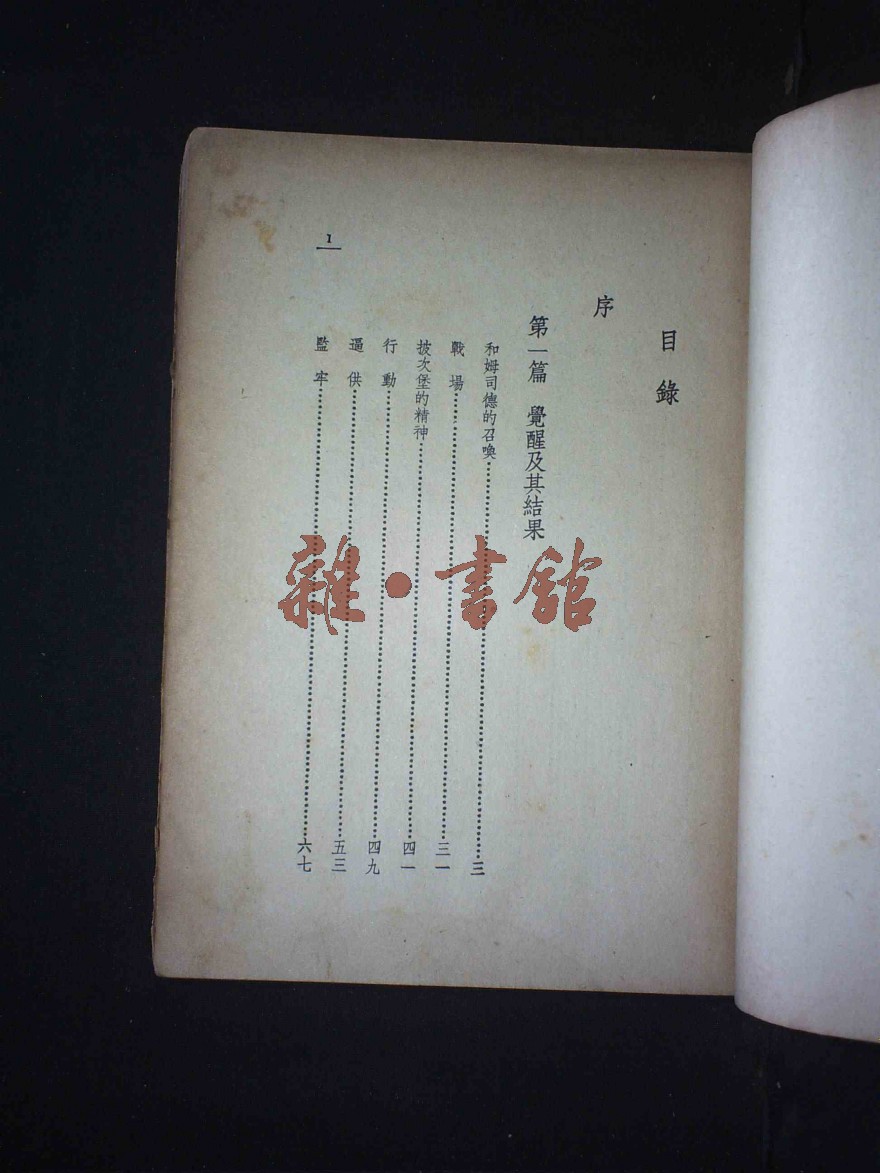 目錄
序
第一篇 覺醒及其結果
和姆司德的召喚……三
戰場……三一
披次堡的精神……四一
行動……四九
逼供……五三
監牢……六七
1
雜•書館